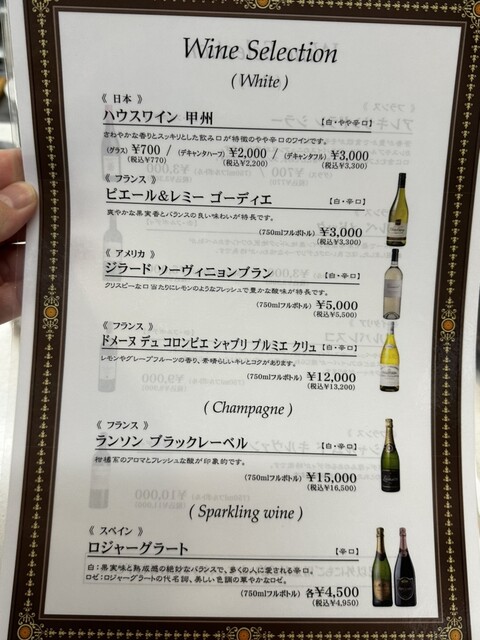 Wine Selection
( White )
《 日本 》
ハウスワイン 甲州 【白・やや辛口】
さわやかな香りとスッキリとした飲み口が特徴のやや辛口のワインです。
(グラス) ¥700 / (デキャンタハーフ) ¥2,000 / (デキャンタフル) ¥3,000
(税込¥770) (税込¥2,200) (税込¥3,300)
《 フランス 》
ピエール&レミー ゴーディエ 【白・辛口】
爽やかな果実香とバランスの良い味わいが特長です。
(750mlフルボトル) ¥3,000
(税込¥3,300)
《 アメリカ 》
ジラード ソーヴィニョンブラン 【白・辛口】
クリスピーな口当たりにレモンのようなフレッシュで豊かな酸味が特長です。
(750mlフルボトル) ¥5,000
(税込¥5,500)
《 フランス 》
ドメーヌ デュ コロンビエ シャブリ プルミエ クリュ 【白・辛口】
レモンやグレープフルーツの香り、素晴らしいキレとコクがあります。
(750mlフルボトル) ¥12,000
(税込¥13,200)
( Champagne )
《 フランス 》
ランソン ブラックレーベル 【白・辛口】
柑橘系のアロマとフレッシュな酸が印象的です。
(750mlフルボトル) ¥15,000
(税込¥16,500)
( Sparkling wine )
《 スペイン 》
ロジャーグラート 【辛口】
白：果実味と熟成感の絶妙なバランスで、多くの人に愛される辛口。
ロゼ：ロジャーグラートの代名詞、美しい色調の華やかなロゼ。
(750mlフルボトル) 各¥4,500
(税込¥4,950)